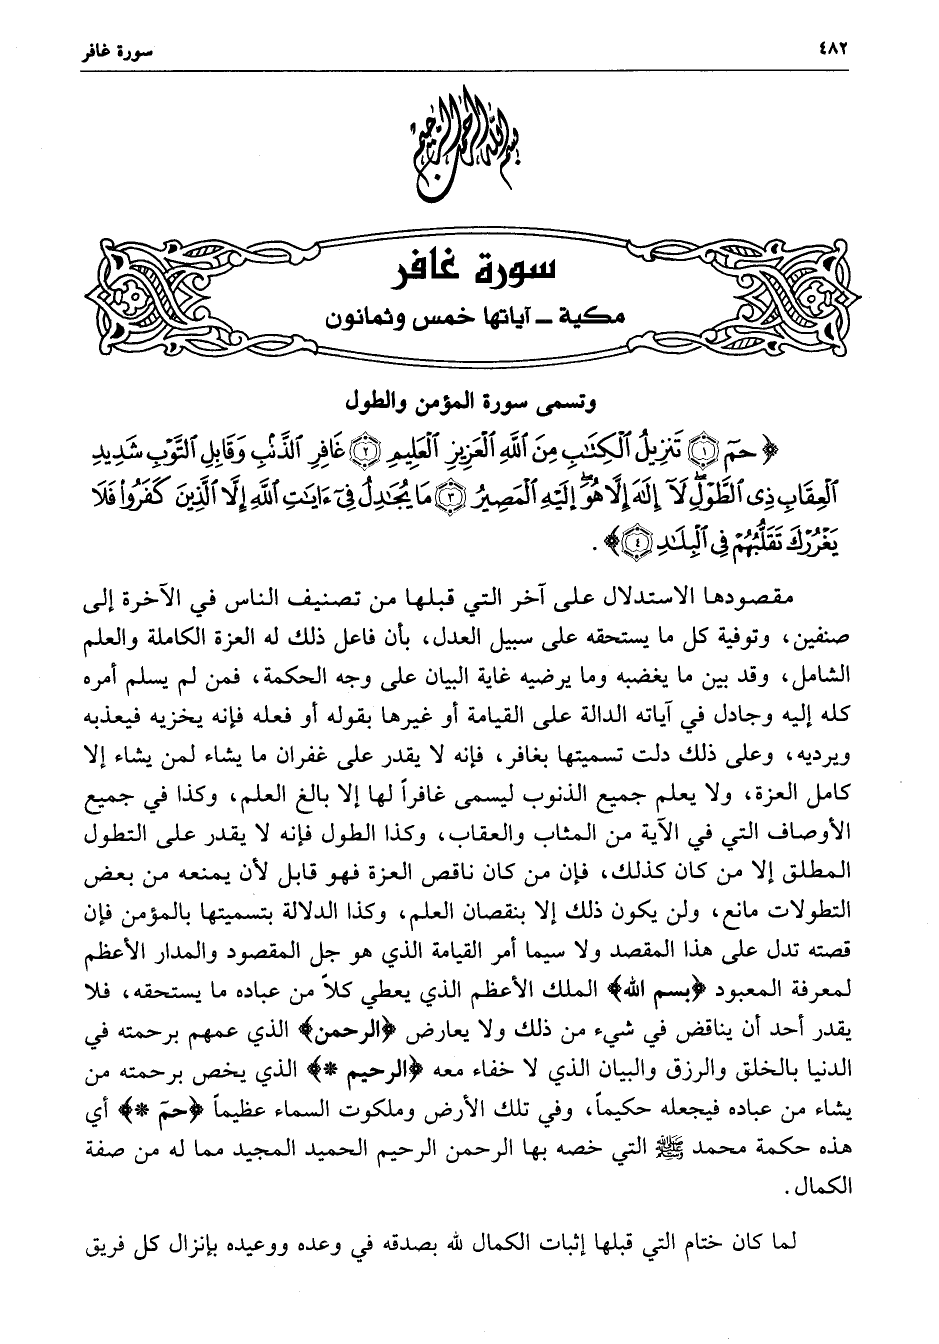 ٤٨٢ سورة غافر
بسم الله الرحمن الرحيم
سورة غافر
مكية ــ آياتها خمس وثمانون
وتسمى سورة المؤمن والطول
﴿ حمٓ ۝١ تَنزِيلُ ٱلْكِتَٰبِ مِنَ ٱللَّهِ ٱلْعَزِيزِ ٱلْعَلِيمِ ۝٢ غَافِرِ ٱلذَّنۢبِ وَقَابِلِ ٱلتَّوْبِ شَدِيدِ
ٱلْعِقَابِ ذِى ٱلطَّوْلِ ۖ لَآ إِلَٰهَ إِلَّا هُوَ ۖ إِلَيْهِ ٱلْمَصِيرُ ۝٣ مَا يُجَٰدِلُ فِىٓ ءَايَٰتِ ٱللَّهِ إِلَّا ٱلَّذِينَ كَفَرُوا۟ فَلَا
يَغْرُرْكَ تَقَلُّبُهُمْ فِى ٱلْبِلَٰدِ ۝٤ ﴾ .
مقصودها الاستدلال على آخر التي قبلها من تصنيف الناس في الآخرة إلى
صنفين، وتوفية كل ما يستحقه على سبيل العدل، بأن فاعل ذلك له العزة الكاملة والعلم
الشامل، وقد بين ما يغضبه وما يرضيه غاية البيان على وجه الحكمة، فمن لم يسلم أمره
كله إليه وجادل في آياته الدالة على القيامة أو غيرها بقوله أو فعله فإنه يخزيه فيعذبه
ويرديه، وعلى ذلك دلت تسميتها بغافر، فإنه لا يقدر على غفران ما يشاء لمن يشاء إلا
كامل العزة، ولا يعلم جميع الذنوب ليسمى غافراً لها إلا بالغ العلم، وكذا في جميع
الأوصاف التي في الآية من المثاب والعقاب، وكذا الطول فإنه لا يقدر على التطول
المطلق إلا من كان كذلك، فإن من كان ناقص العزة فهو قابل لأن يمنعه من بعض
التطولات مانع، ولن يكون ذلك إلا بنقصان العلم، وكذا الدلالة بتسميتها بالمؤمن فإن
قصته تدل على هذا المقصد ولا سيما أمر القيامة الذي هو جل المقصود والمدار الأعظم
لمعرفة المعبود ﴿بسم الله﴾ الملك الأعظم الذي يعطي كلاً من عباده ما يستحقه، فلا
يقدر أحد أن يناقض في شيء من ذلك ولا يعارض ﴿الرحمن﴾ الذي عمهم برحمته في
الدنيا بالخلق والرزق والبيان الذي لا خفاء معه ﴿الرحيم *﴾ الذي يخص برحمته من
يشاء من عباده فيجعله حكيماً، وفي تلك الأرض وملكوت السماء عظيماً ﴿حمٓ *﴾ أي
هذه حكمة محمد ﷺ التي خصه بها الرحمن الرحيم الحميد المجيد مما له من صفة
الكمال.
لما كان ختام التي قبلها إثبات الكمال لله بصدقه في وعده ووعيده بإنزال كل فريق